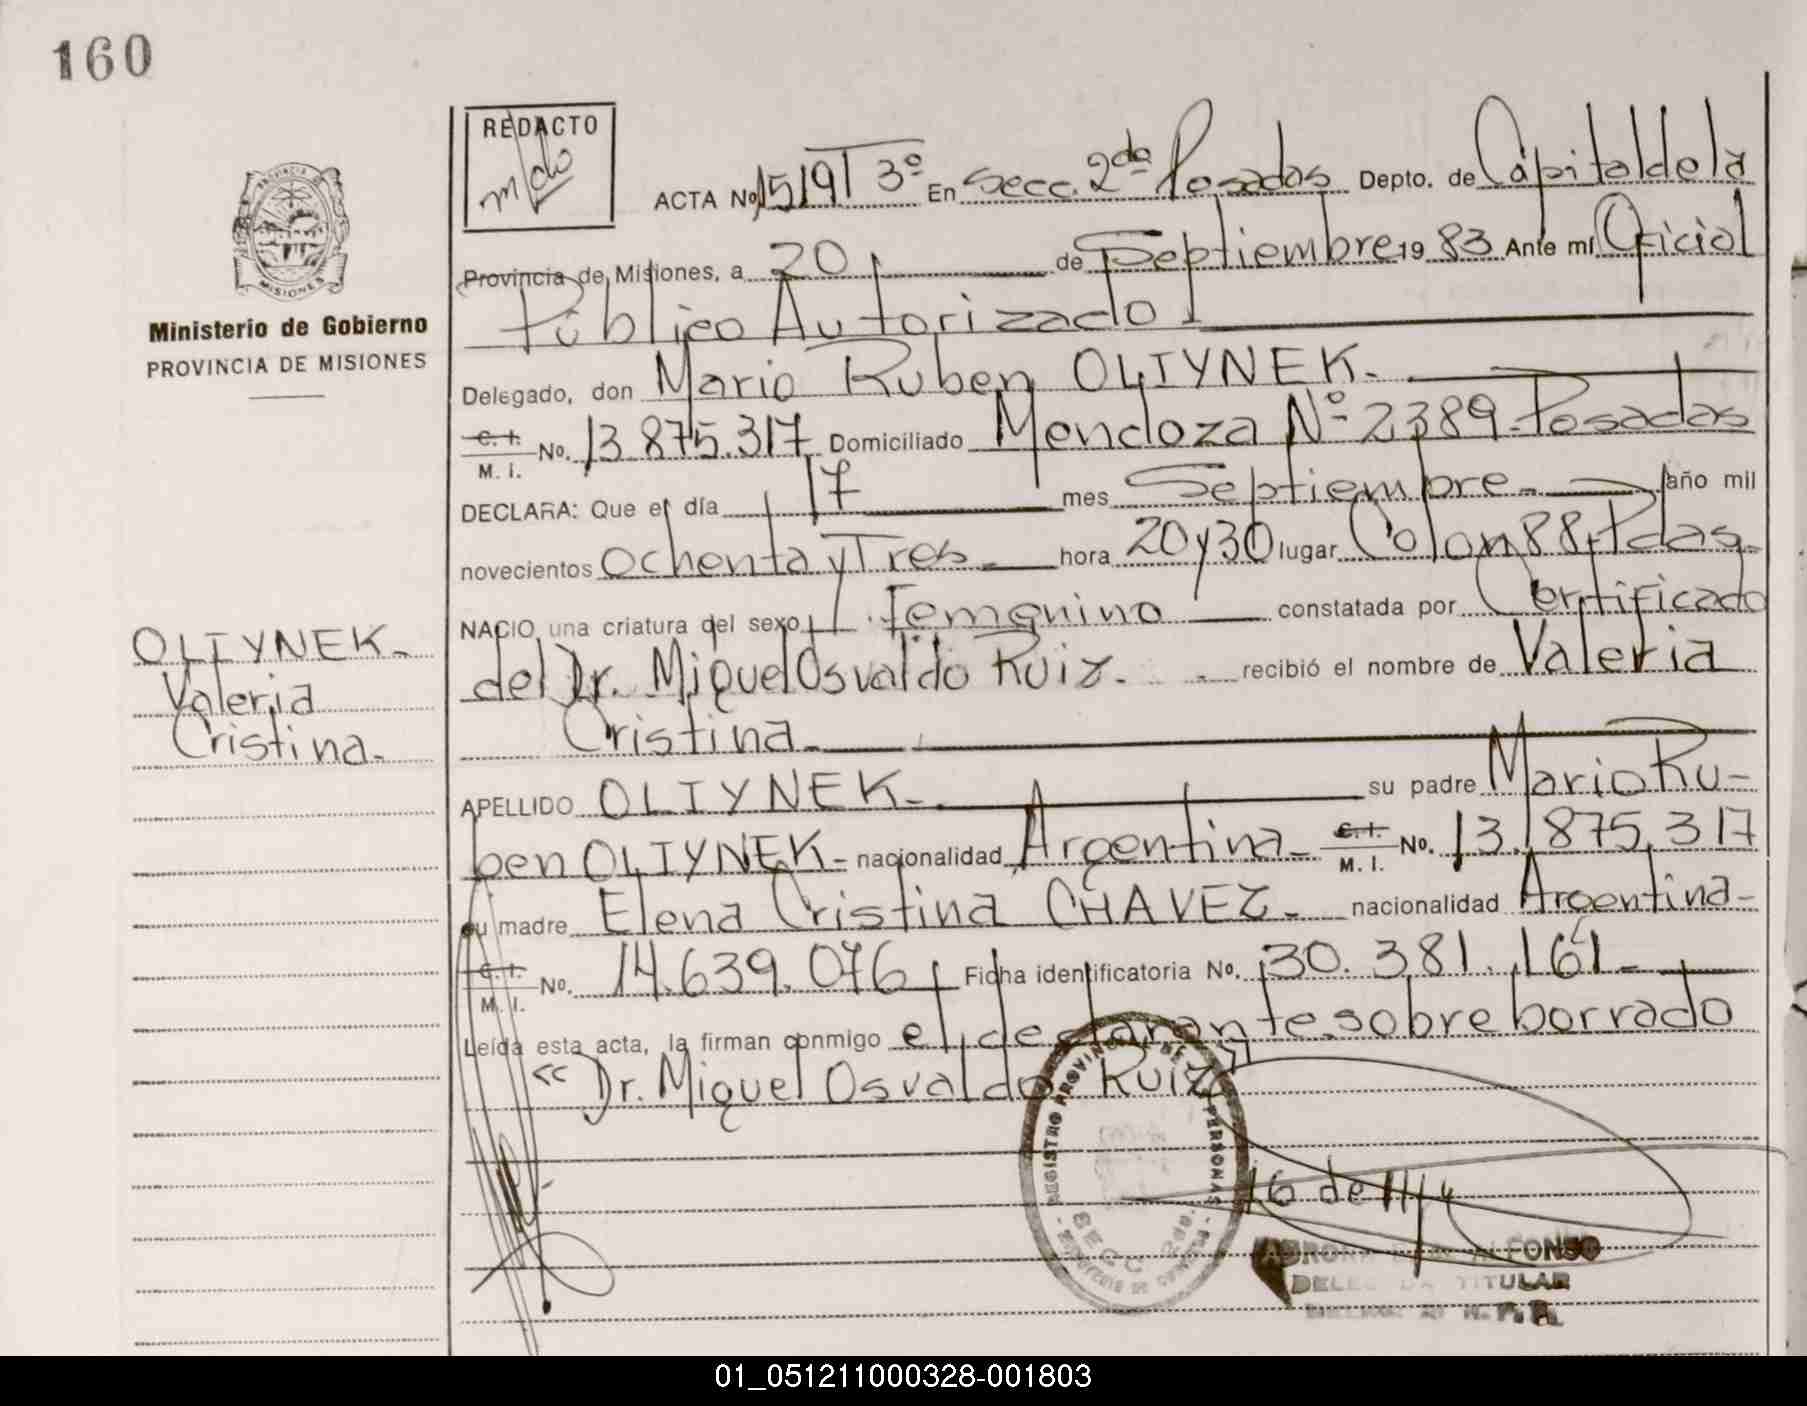 160
REDACTO
ACTA No 1519 T 3º En Secc. 2da Posadas Depto. de Capital de la
Provincia de Misiones, a 20 de Septiembre 19 83 Ante mí Oficial
Público Autorizado
Delegado, don Mario Ruben OLIYNEK.
C. I. / M. I. No. 13.875.317 Domiciliado Mendoza Nº 2389-Posadas
DECLARA: Que el día 17 mes Septiembre año mil
novecientos ochenta y Tres hora 20 y 30 lugar Colon 88, Pdas.
NACIO una criatura del sexo Femenino constatada por Certificado
del Dr. Miguel Osvaldo Ruiz. recibió el nombre de Valeria
Cristina.
APELLIDO OLIYNEK su padre Mario Ru-
ben OLIYNEK nacionalidad Argentina C. I. / M. I. No. 13.875.317
su madre Elena Cristina CHAVEZ nacionalidad Argentina
C. I. / M. I. No. 14.639.076 Ficha identificatoria No. 30.381.161
Leída esta acta, la firman conmigo el declarante, sobre borrado
<< Dr. Miguel Osvaldo Ruiz
PROVINCIA DE MISIONES
Ministerio de Gobierno
PROVINCIA DE MISIONES
OLIYNEK
Valeria
Cristina
REGISTRO PROVINCIAL DE PERSONAS
SECC. 2da.
ALFONSO
TITULAR
01_051211000328-001803